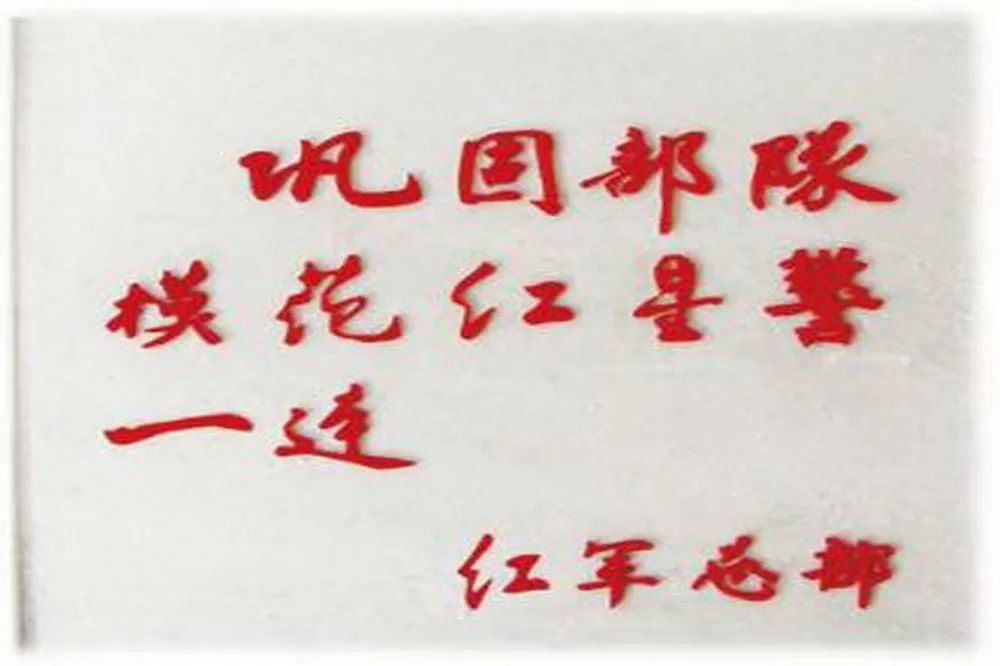 巩固部隊
模范红星警
一连
红军总部